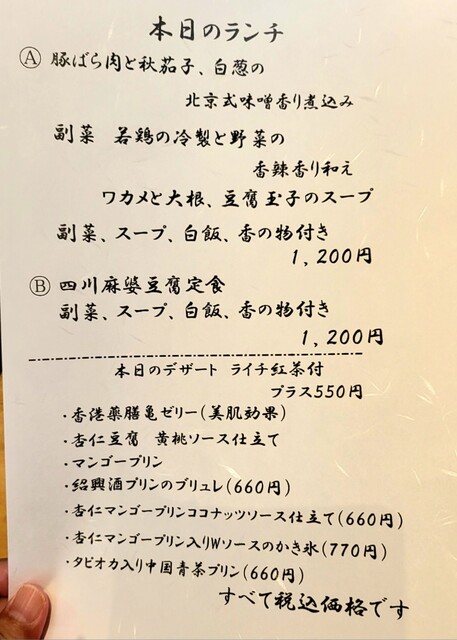 本日のランチ
Ⓐ 豚ばら肉と秋茄子、白葱の
北京式味噌香り煮込み
副菜 若鶏の冷製と野菜の
香辣香り和え
ワカメと大根、豆腐玉子のスープ
副菜、スープ、白飯、香の物付き
1,200円
Ⓑ 四川麻婆豆腐定食
副菜、スープ、白飯、香の物付き
1,200円
本日のデザート ライチ紅茶付
プラス550円
・香港薬膳亀ゼリー(美肌効果)
・杏仁豆腐 黄桃ソース仕立て
・マンゴープリン
・紹興酒プリンのブリュレ(660円)
・杏仁マンゴープリンココナッツソース仕立て(660円)
・杏仁マンゴープリン入りWソースのかき氷(770円)
・タピオカ入り中国青茶プリン(660円)
すべて税込価格です